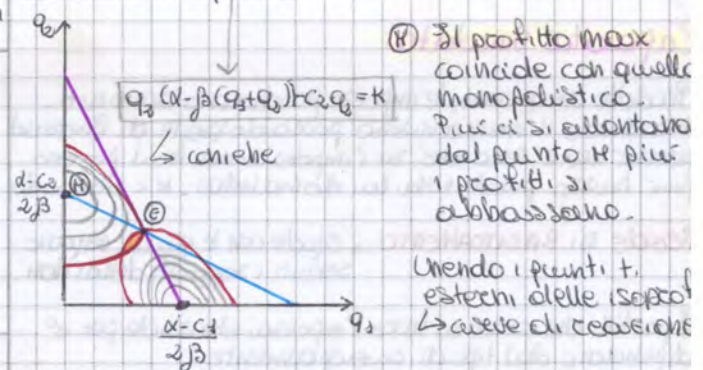 q₂
q₂(α-β(q₁+q₂))-c₂q₂=K
↳ coniche
α-C₂
2β
M
E
α-C₁
2β
q₁
(M) Il profitto max
coincide con quello
monopolistico.
Più ci si allontana
dal punto M più
i profitti si
abbassano.
Unendo i punti +
esterni delle isoprof
↳ curve di reazione